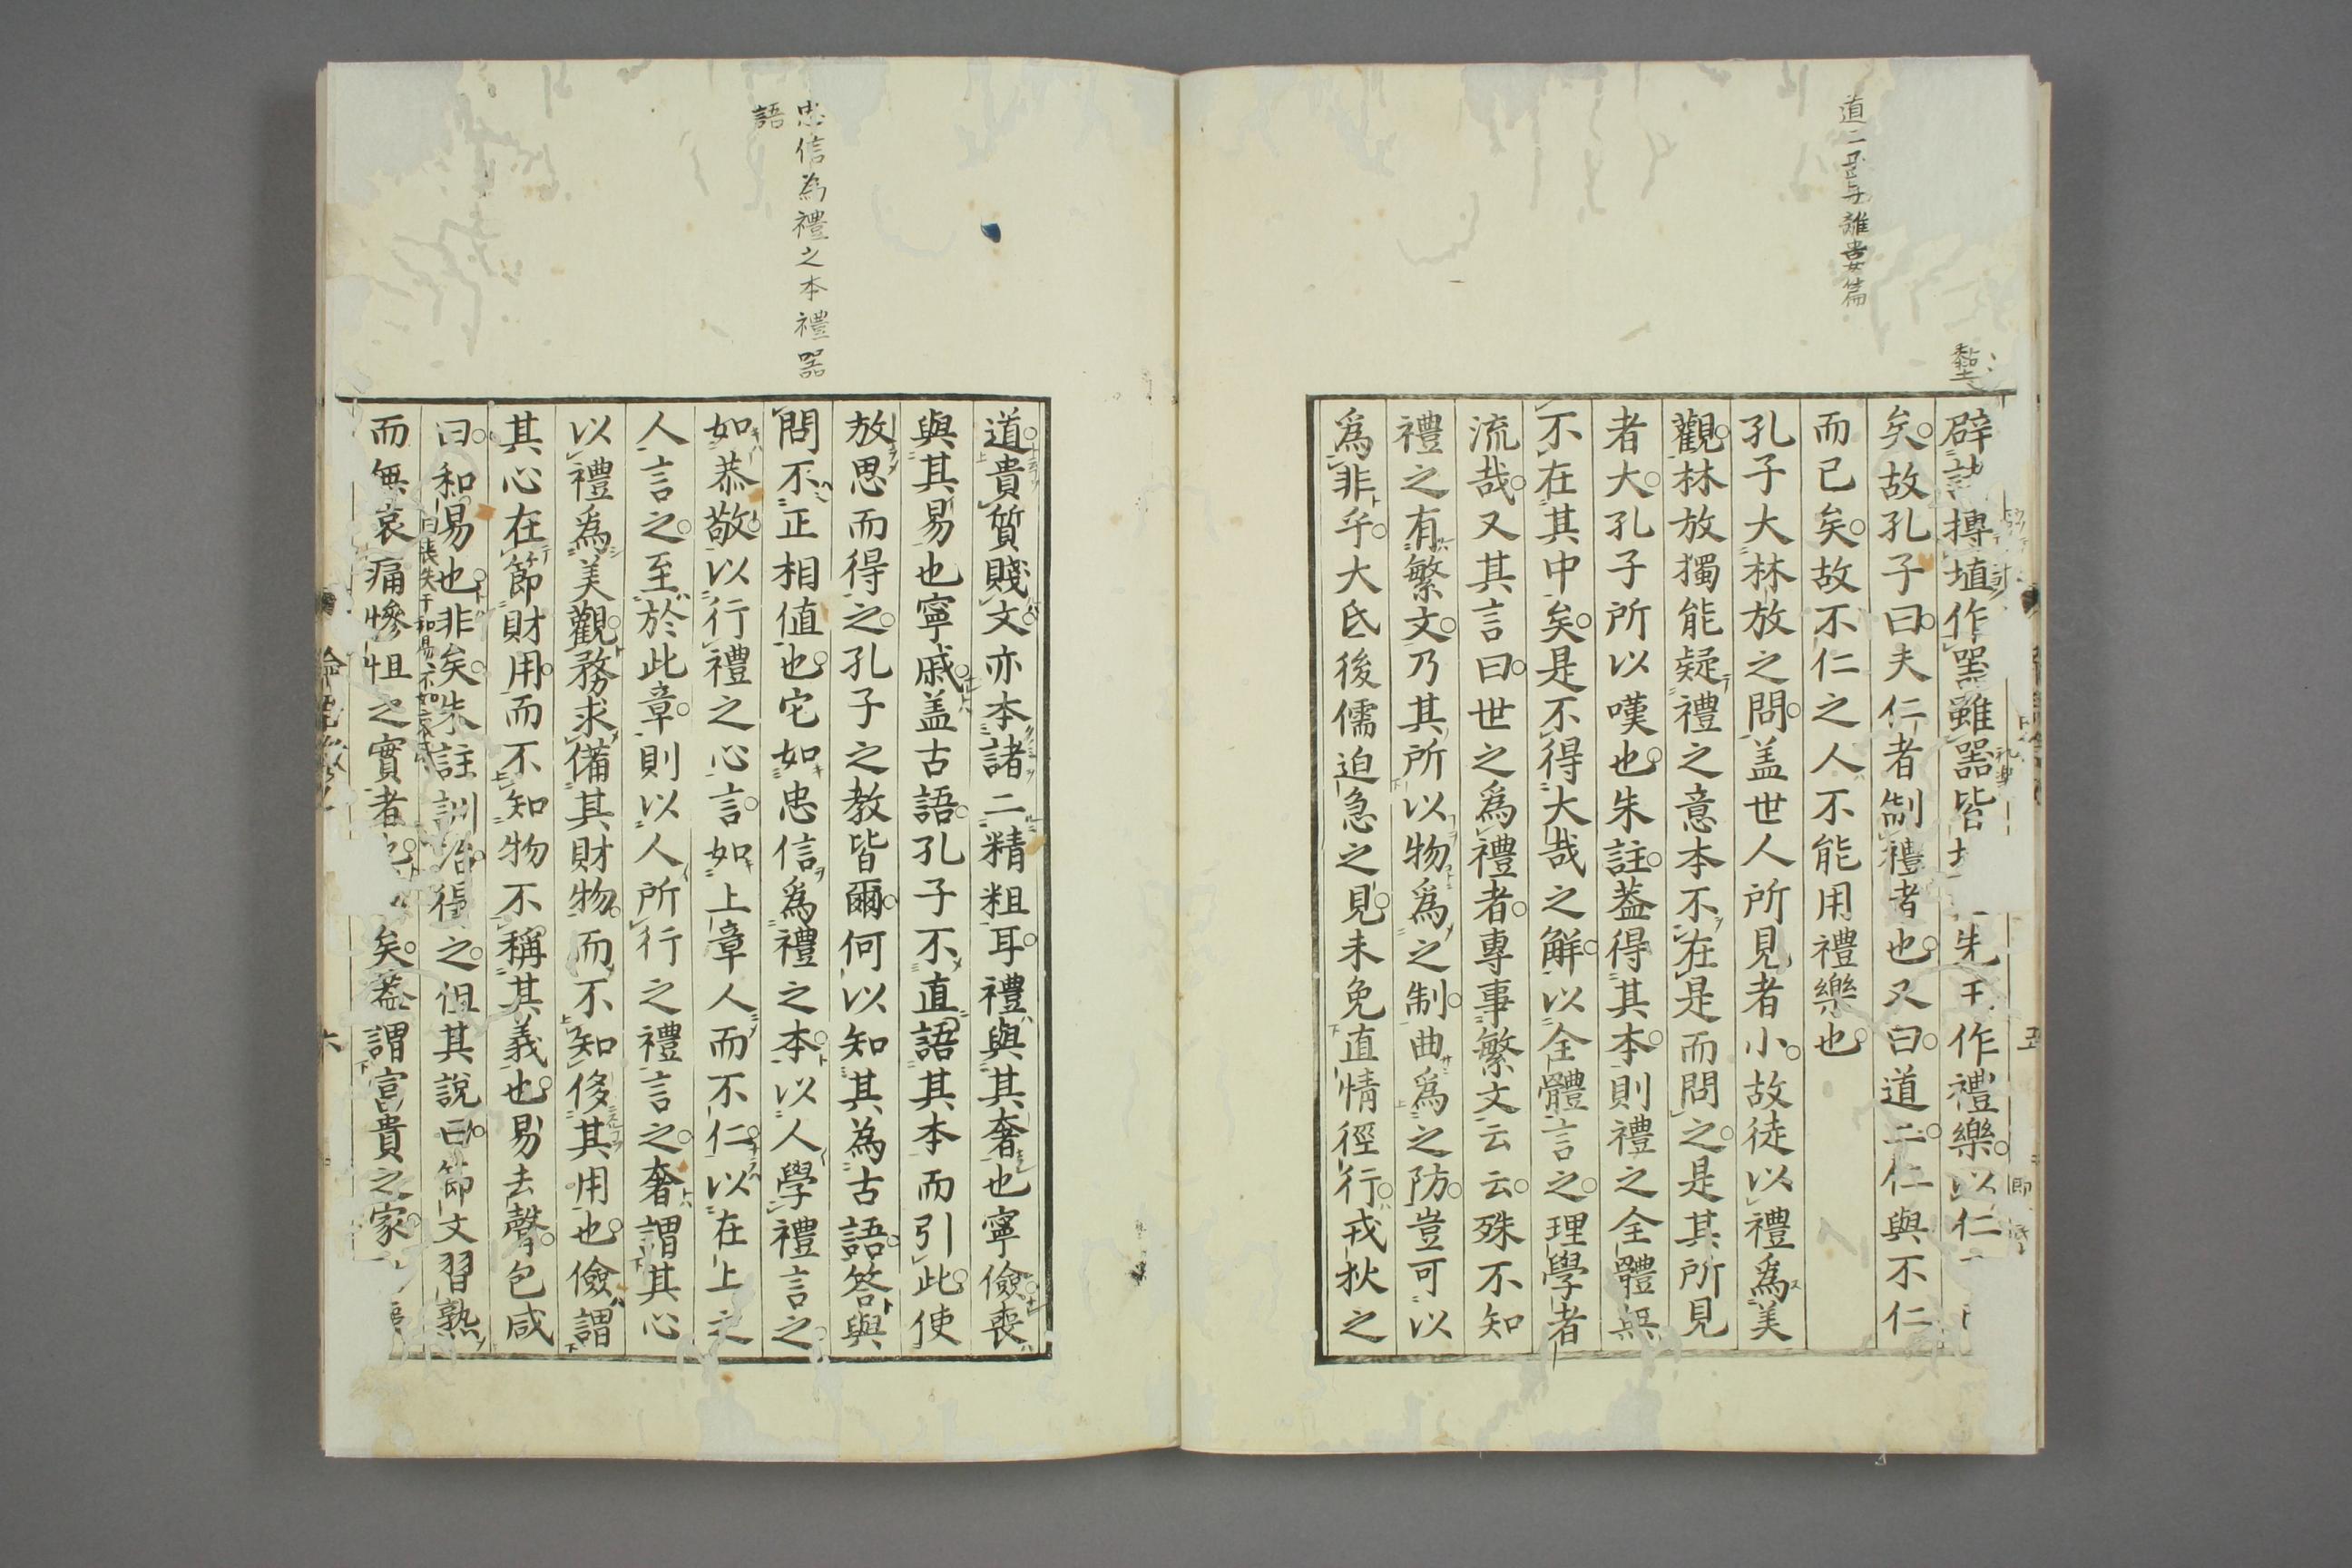 道二孟与離婁篇
辟諸摶埴作器雖器皆
先王作禮樂以仁
矣故孔子曰夫仁者制禮者也又曰道二仁與不仁
而已矣故不仁之人不能用禮樂也
孔子大林放之問盖世人所見者小故徒以禮爲美
觀林放獨能疑禮之意本不在是而問之是其所見
者大孔子所以嘆也朱註葢得其本則禮之全體無
不在其中矣是不得大哉之解以全體言之理學者
流哉又其言曰世之爲禮者專事繁文云云殊不知
禮之有繁文乃其所以物爲之制曲爲之防豈可以
爲非乎大氐後儒迫急之見未免直情徑行戎狄之
忠信為禮之本禮器
語
道貴質賤文亦本諸二精粗耳禮與其奢也寧儉喪
與其易也寧戚盖古語孔子不直語其本而引此使
放思而得之孔子之教皆爾何以知其為古語答與
問不正相值也它如忠信爲禮之本以人學禮言之
如恭敬以行禮之心言如上章人而不仁以在上之
人言之至於此章則以人所行之禮言之奢謂其心
以禮爲美觀務求備其財物而不知侈其用也儉謂
其心在節財用而不知物不稱其義也易去聲包咸
曰和易也非矣朱註訓治得之但其說曰節文習熟
而無哀痛慘怛之實者也
矣葢謂富貴之家
六